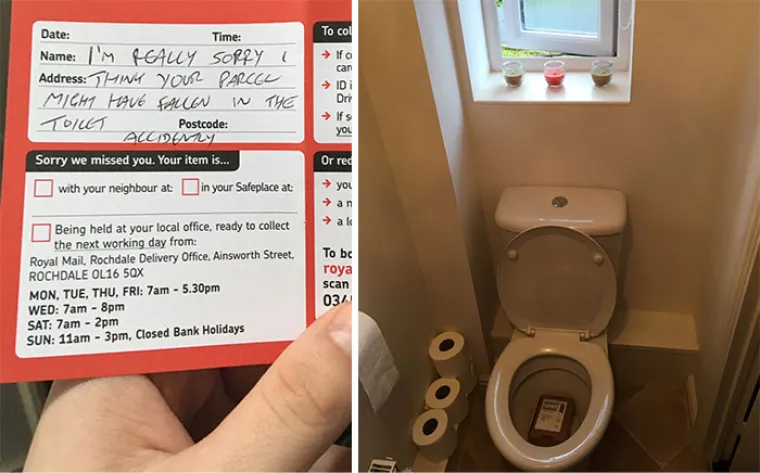 Date: Time:
Name: I'M REALLY SORRY I
Address: THINK YOUR PARCEL
MIGHT HAVE FALLEN IN THE
TOILET Postcode:
ACCIDENTLY
Sorry we missed you. Your item is...
with your neighbour at: in your Safeplace at:
Being held at your local office, ready to collect
the next working day from:
Royal Mail, Rochdale Delivery Office, Ainsworth Street,
ROCHDALE OL16 5QX
MON, TUE, THU, FRI: 7am - 5.30pm
WED: 7am - 8pm
SAT: 7am - 2pm
SUN: 11am - 3pm, Closed Bank Holidays
To col
→ If o
can
→ ID i
Dri
→ If s
you
Or rec
→ you
→ a n
→ a l
To bo
roya
scan
034